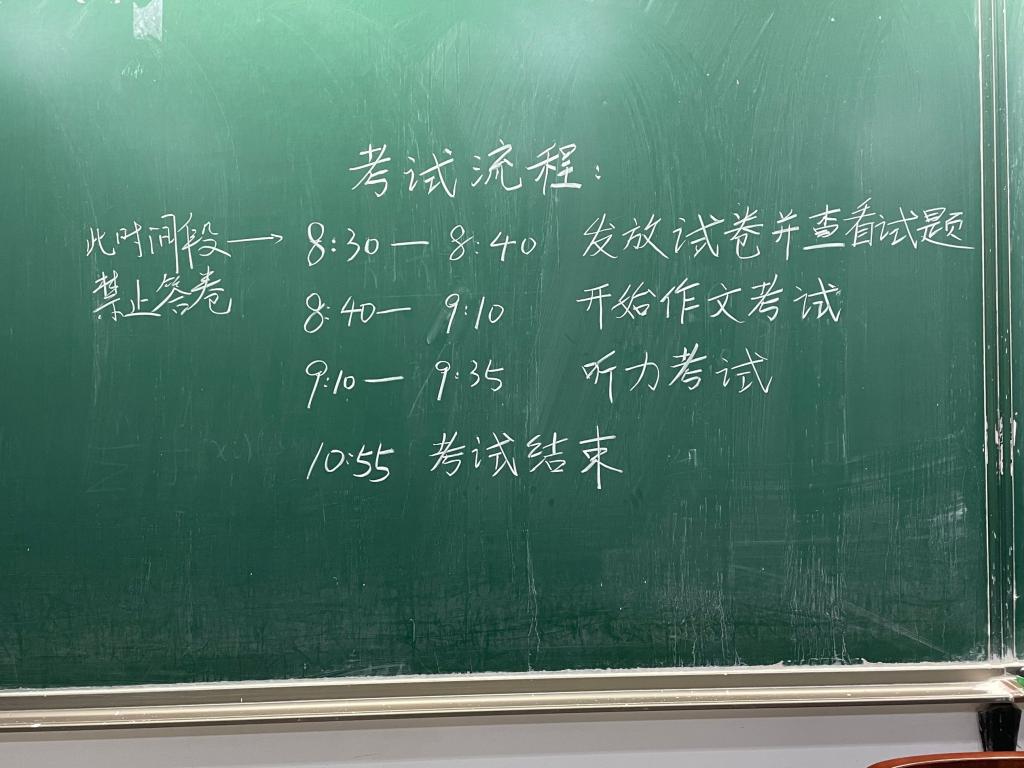 考试流程：
此时间段 → 8:30 — 8:40 发放试卷并查看试题
禁止答卷
8:40 — 9:10 开始作文考试
9:10 — 9:35 听力考试
10:55 考试结束